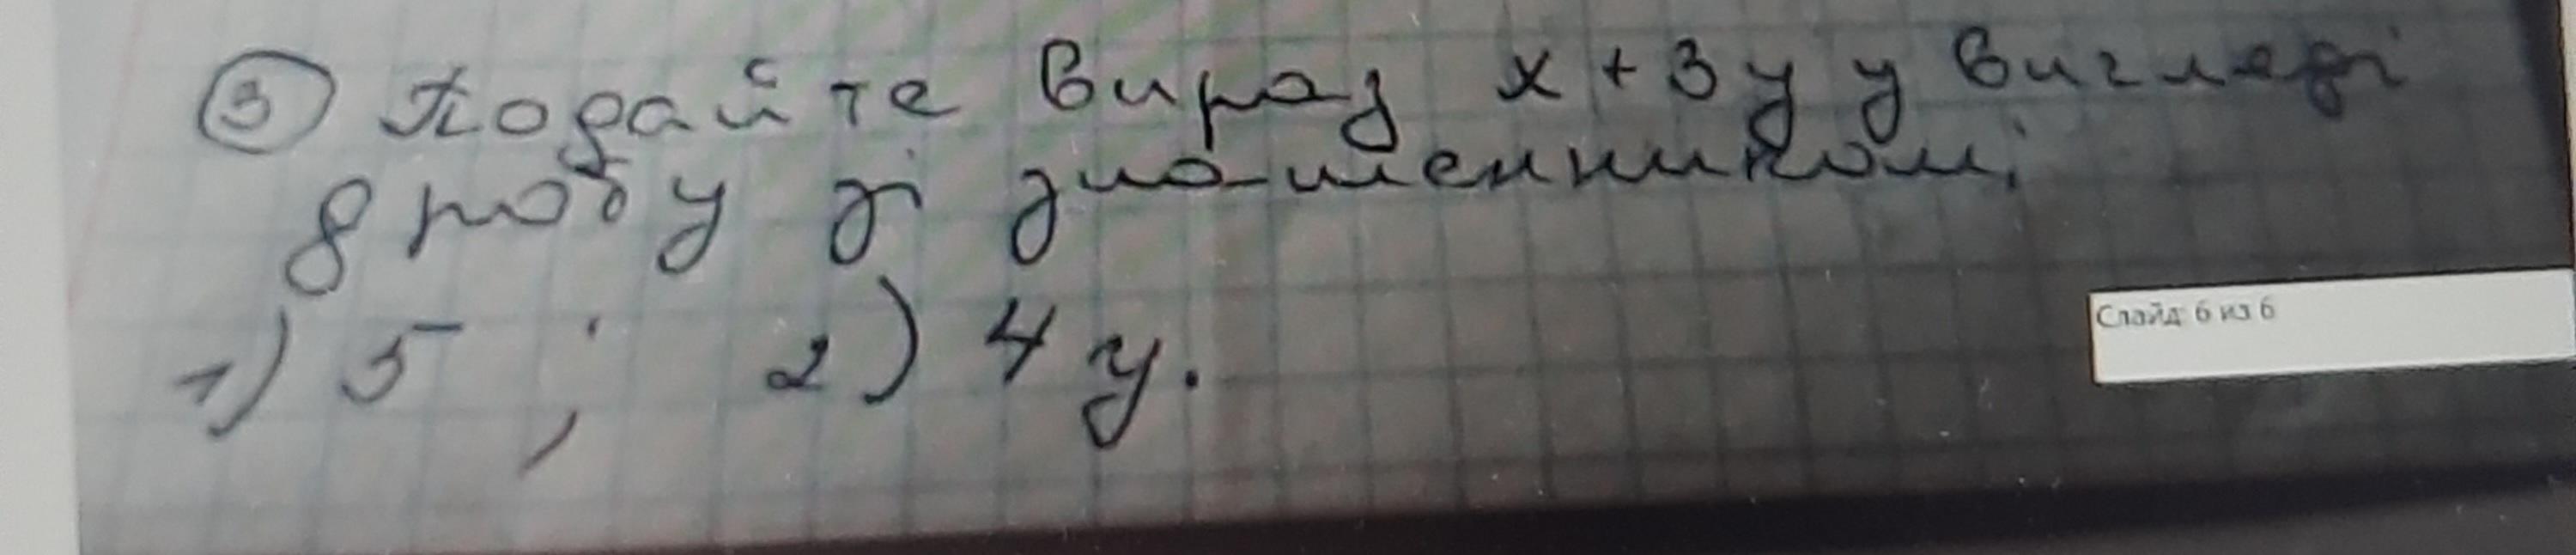 ③ Подайте вираз x + 3y у вигляді
дробу зі знаменником:
1) 5 ; 2) 4y.
Слайд 6 из 6